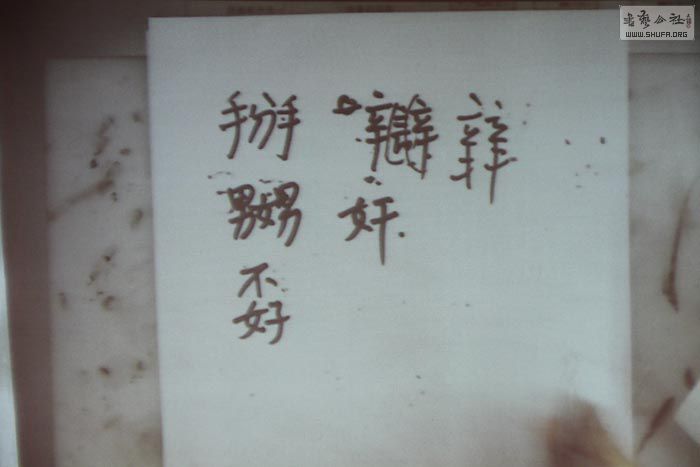 書藝公社
WWW.SHUFA.ORG
辡
奸
掰嬲不好